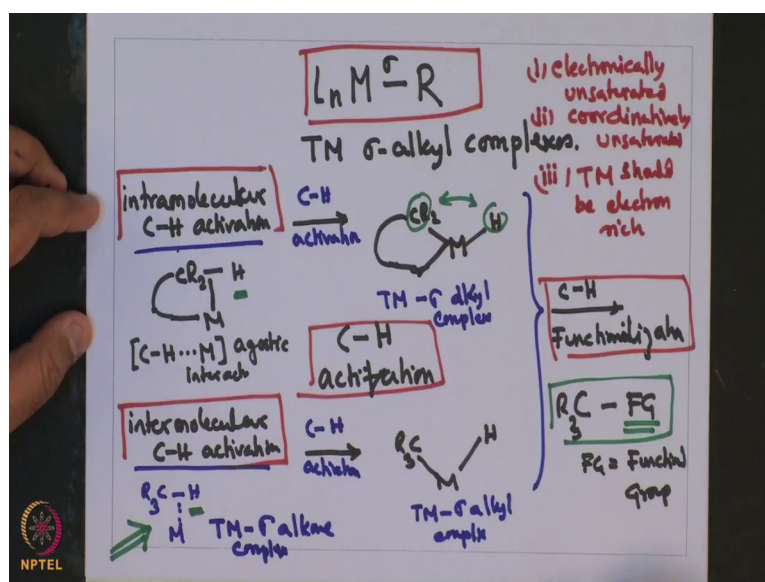 LnM σ– R
TM σ-alkyl complexes.
(i) electronically
unsaturated
(ii) coordinatively
unsaturated
(iii) TM should
be electron
rich
intramolecular
C-H activation
C-H
activation
CR2
H
M
TM-σ alkyl
complex
CR2 – H
M
[C-H···M] agostic
interactn
C-H
activation
C-H
Functionalization
R3C – FG
FG = Functional
Group
intermolecular
C-H activation
C-H
activation
R3C
H
M
TM-σ alkyl
complex
R3C – H
M
TM-σ alkane
complex
NPTEL